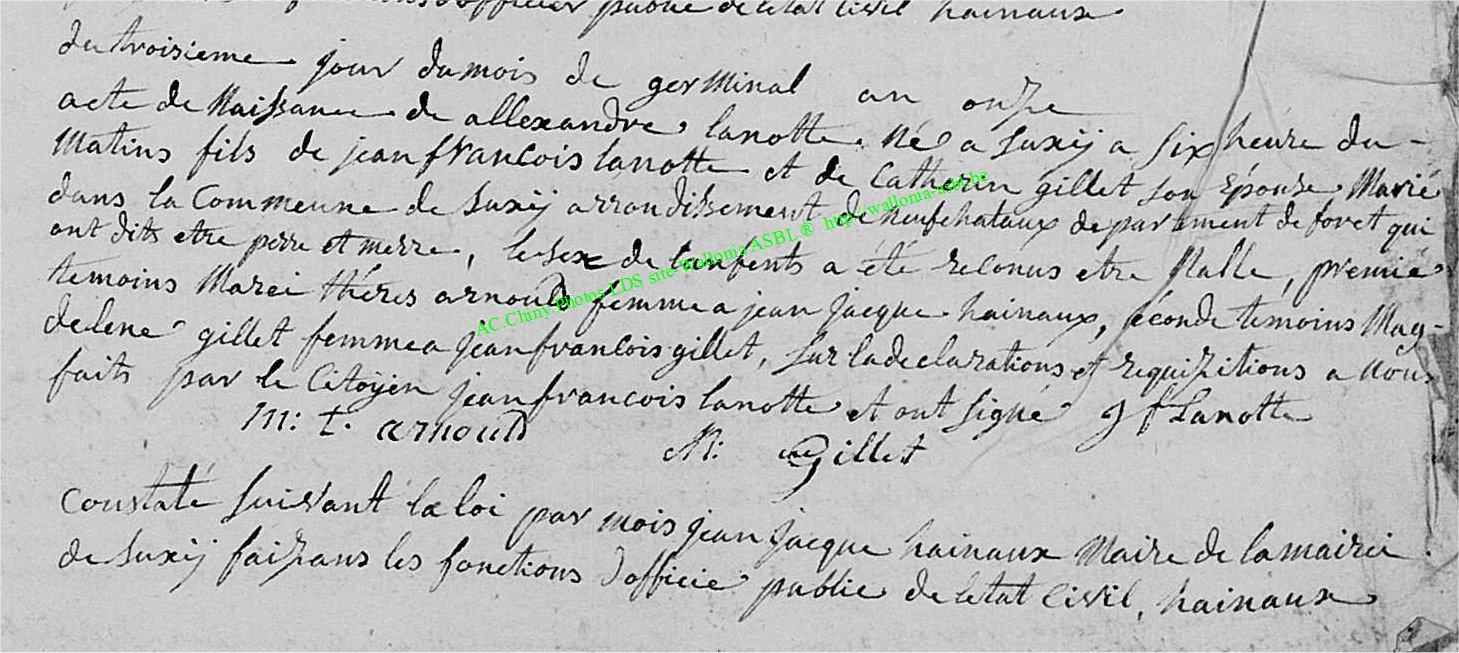 d'officier public de letat Civil hainaux
du troisieme jour du mois de germinal an onze
acte de Naissance de allexandre lanotte Né a Suxÿ a six heure du-
Matins fils de jean francois lanotte et de Catherin gillet son Epouse Marié
dans la Commeune de Suxÿ arrondissement de neufchataux departement de foret qui
ont dits etre perre et merre, le sex de lanfents a été reconus etre Malle, premié
temoins Marei thérés arnould femme a jean jacque hainaux, séconde temoins Mag-
delene gillet femme a jean francois gillet, sur la declarations et requisitions a nous
faits par le Citoÿen jean francois lanotte et ont signé j f Lanotte
m: t. arnould M: Gillet
Constaté suivant la loi par mois jean jacque hainaux Maire de la mairei
de Suxÿ faisans les fonctions d'officié public de letat Civil, hainaux
AC Chiny Photos LDS site Wallonia ASBL ® http://wallonia-asbl.be